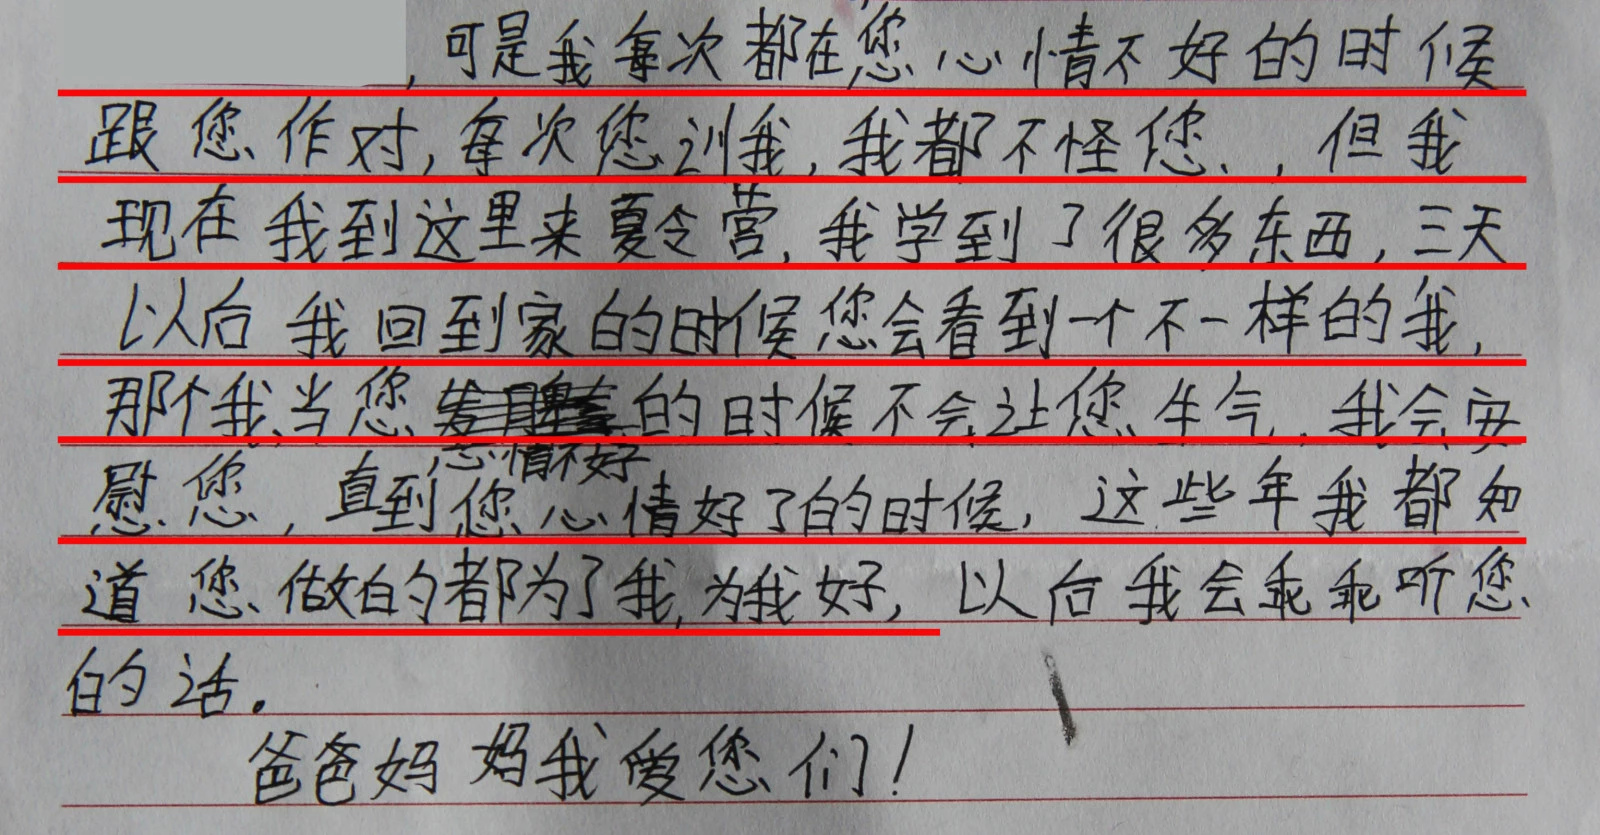 ，可是我每次都在您心情不好的时候
跟您作对，每次您训我，我都不怪您、，但我
现在我到这里来夏令营，我学到了很多东西，三天
以后我回到家的时候您会看到一个不一样的我，
那个我当您的时候不会让您生气，我会安
心情不好
慰您，直到您心情好了的时候，这些年我都知
道您做的都为了我，为我好，以后我会乖乖听您
的话。
爸爸妈妈我爱您们！